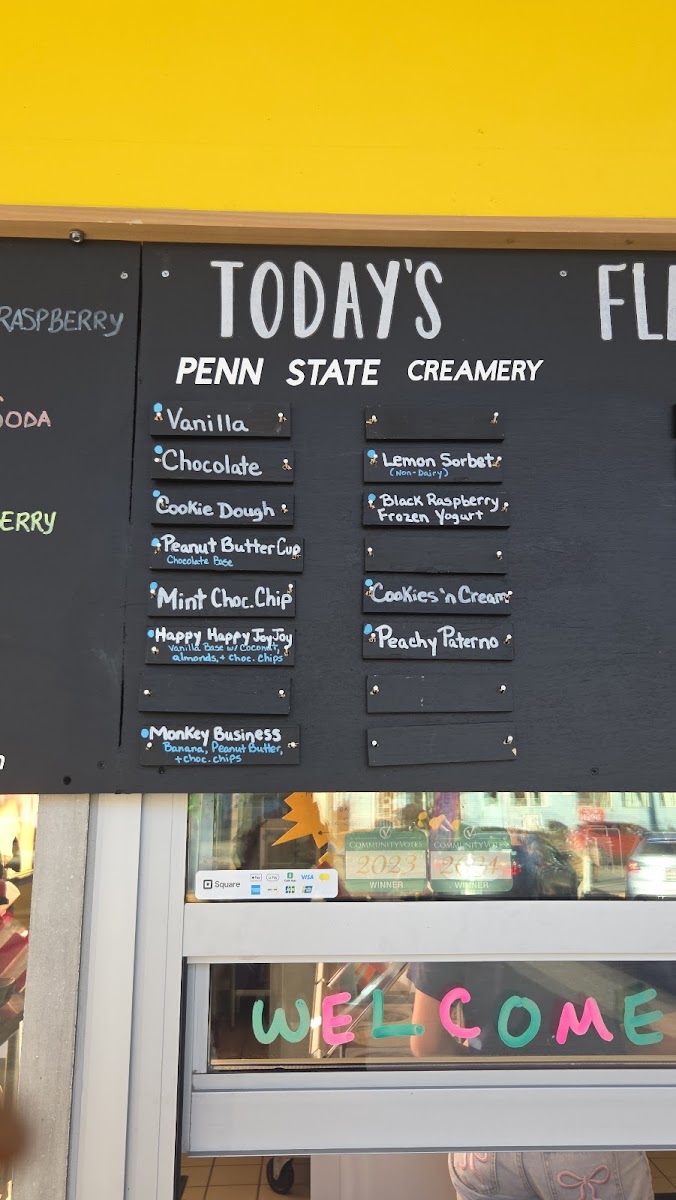 RASPBERRY
SODA
ERRY
TODAY'S
PENN STATE CREAMERY
Vanilla
Chocolate
Cookie Dough
Peanut Butter Cup
Chocolate Base
Mint Choc. Chip
Happy Happy Joy Joy
Vanilla Base w/ Coconut,
almonds, + choc. chips
Monkey Business
Banana, Peanut Butter,
+ choc. chips
Lemon Sorbet
(Non-Dairy)
Black Raspberry
Frozen Yogurt
Cookies 'n Cream
Peachy Paterno
FL
COMMUNITYVOTES
2023
WINNER
COMMUNITYVOTES
2024
WINNER
Square
Pay
VISA
WELCOME